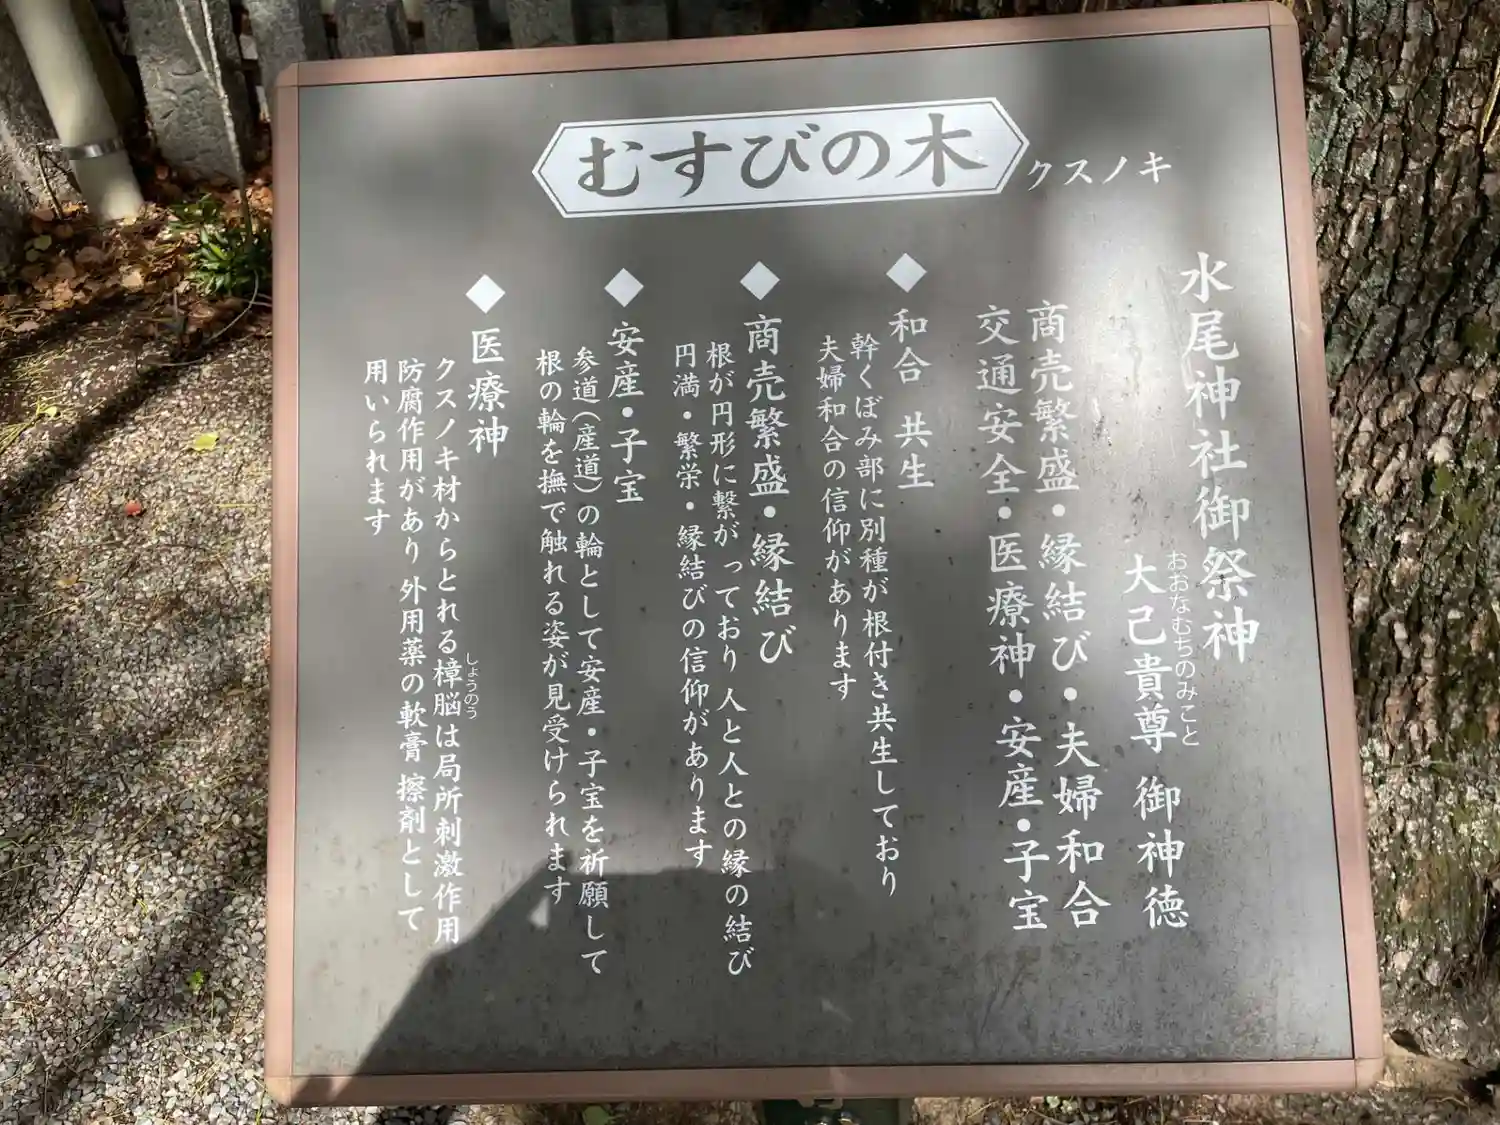 むすびの木
クスノキ
水尾神社御祭神
大己貴尊 御神徳
おおなむちのみこと
商売繁盛・縁結び・夫婦和合
交通安全・医療神・安産・子宝
◆和合 共生
幹くぼみ部に別種が根付き共生しており
夫婦和合の信仰があります
◆商売繁盛・縁結び
根が円形に繋がっており人と人との縁の結び
円満・繁栄・縁結びの信仰があります
◆安産・子宝
参道(産道)の輪として安産・子宝を祈願して
根の輪を撫で触れる姿が見受けられます
◆医療神
クスノキ材からとれる樟脳は局所刺激作用
しょうのう
防腐作用があり外用薬の軟膏 擦剤として
用いられます